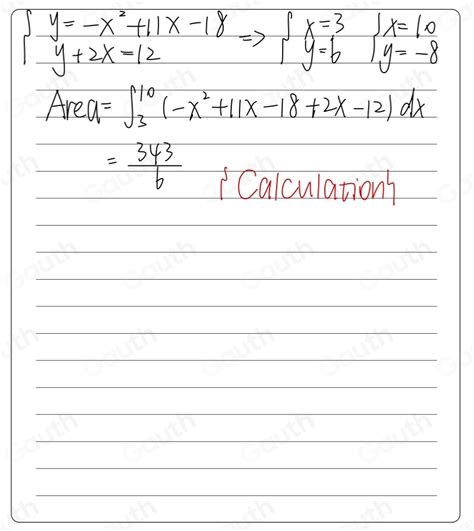 { y = -x² + 11x - 18
y + 2x = 12 => { x = 3
y = 6 { x = 10
y = -8
Area = ∫₃¹⁰ (-x² + 11x - 18 + 2x - 12) dx
= 343/6
{Calculation}